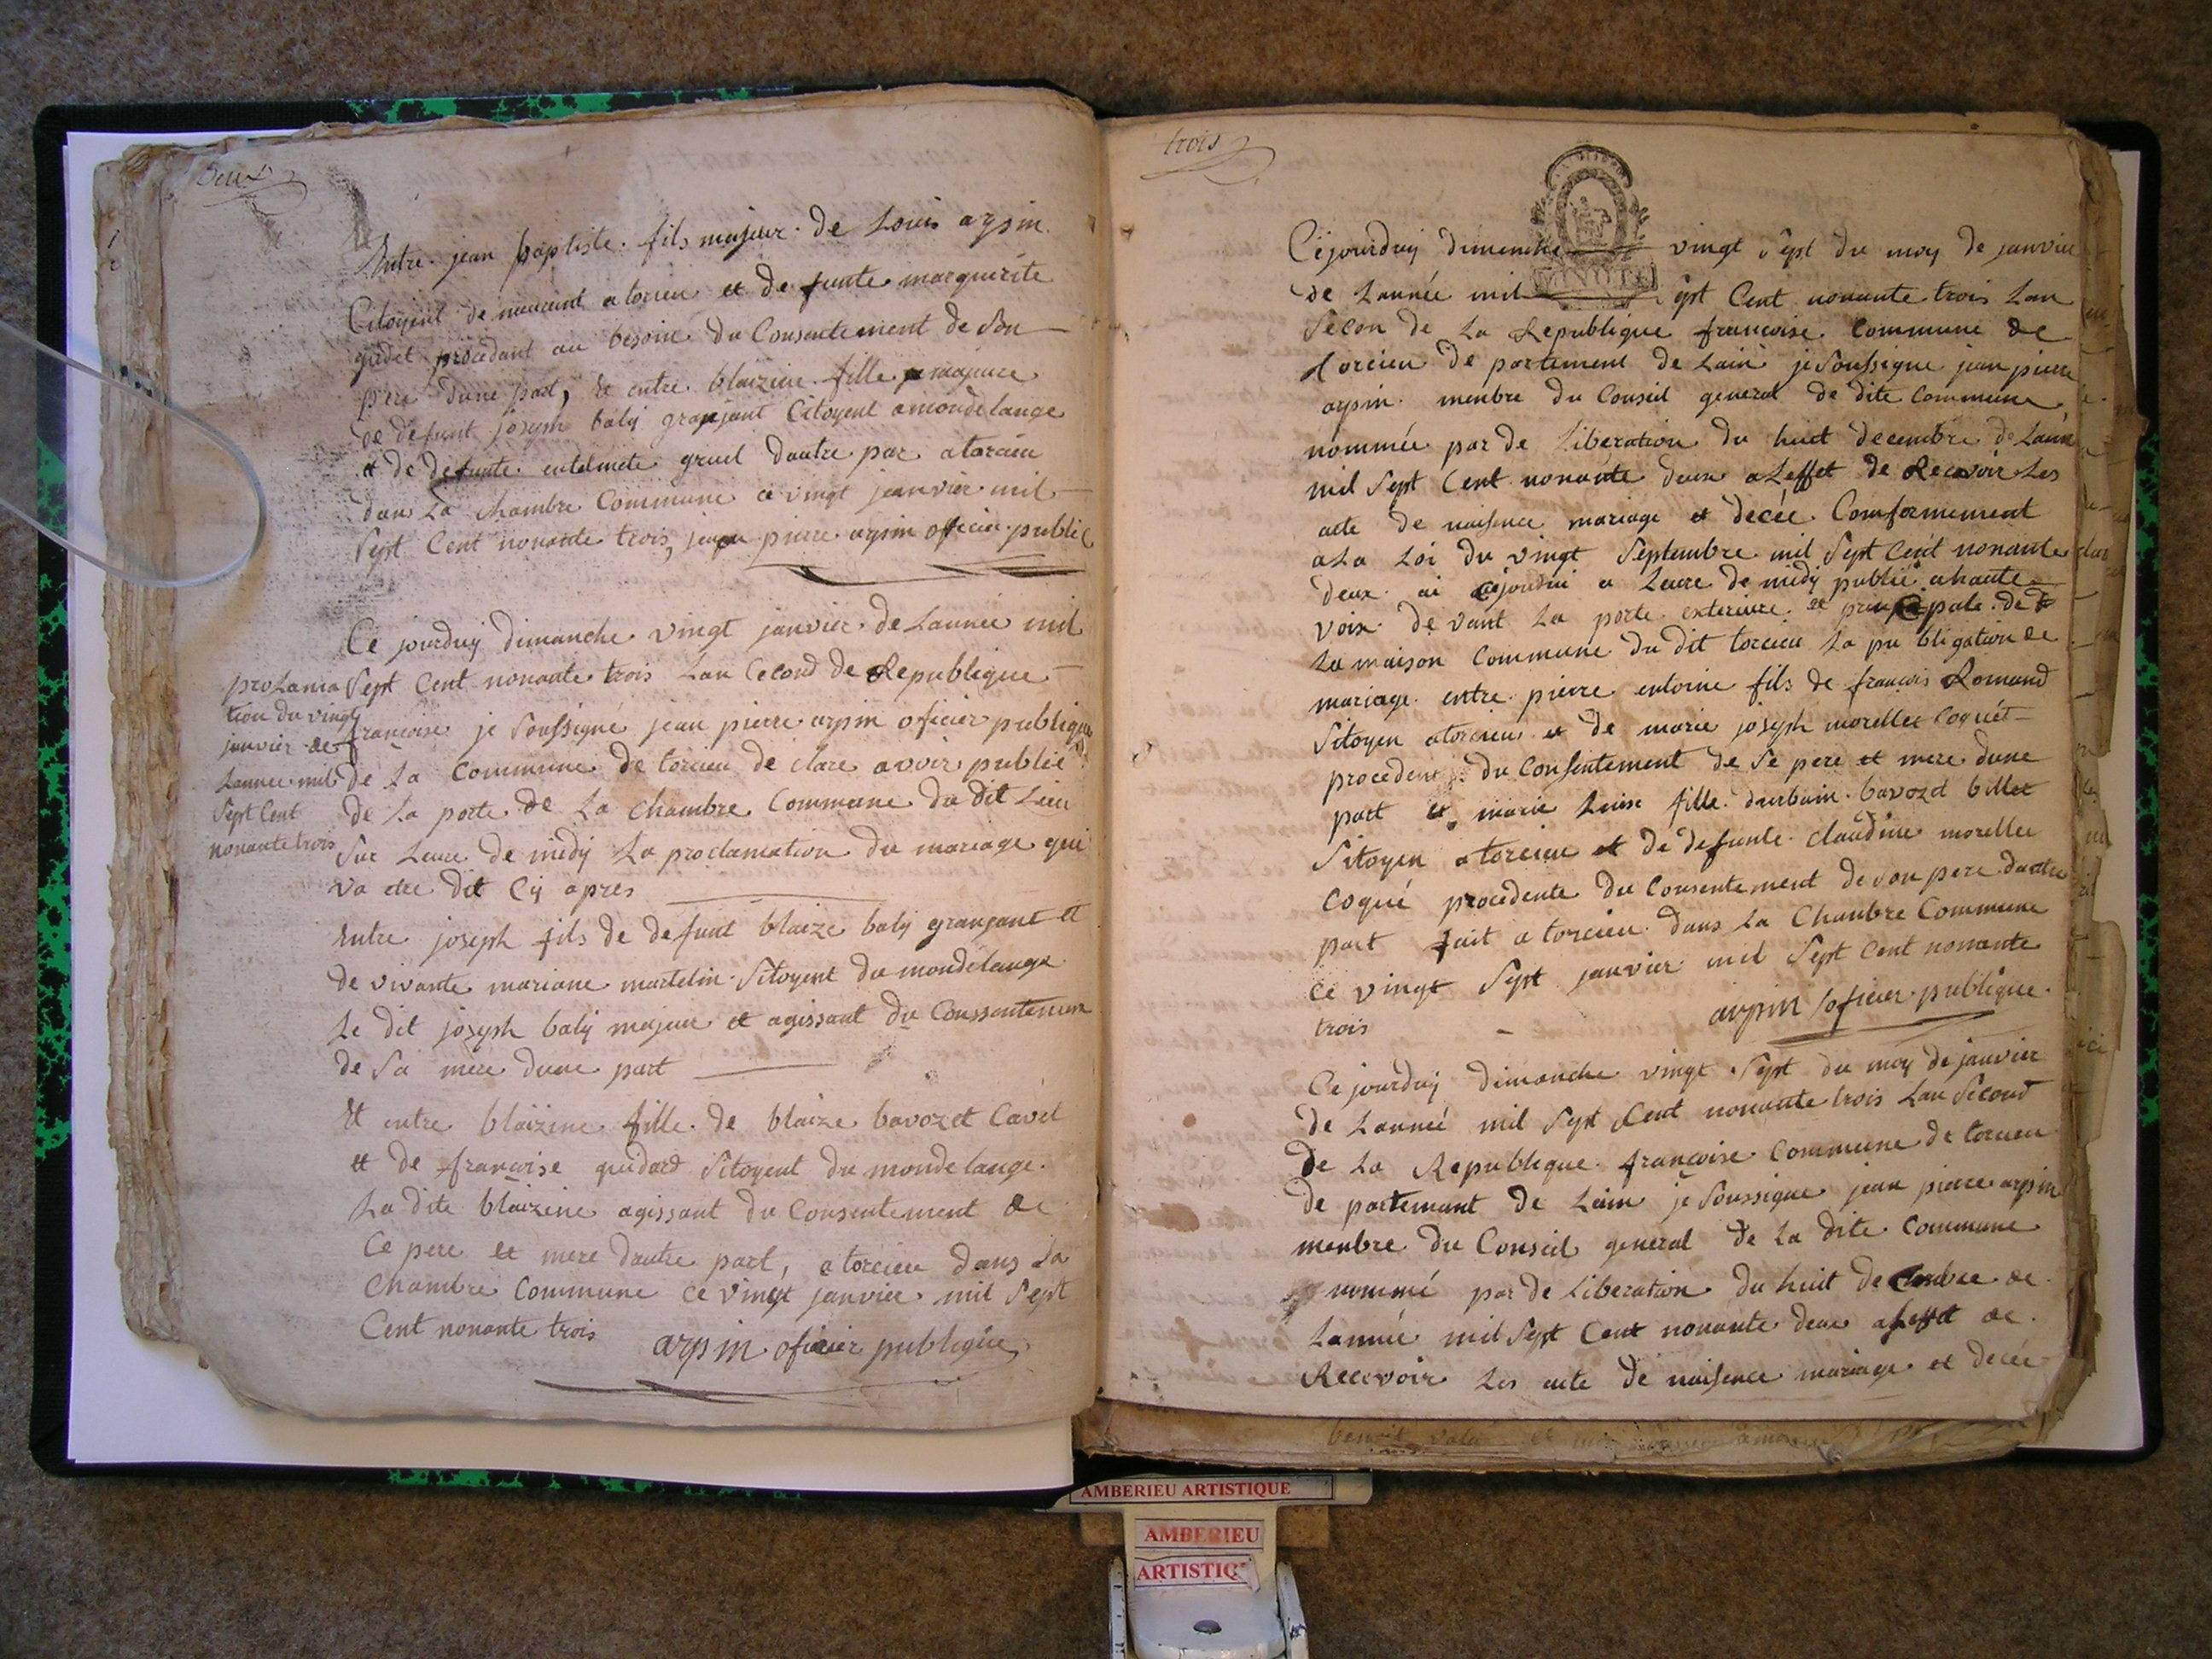 Deux
Entre jean baptiste fils majeur de Louis arpin
Citoyent de meurant a torcieu et de funte marguerite
gudet procedant au besoin du Consentement de Son
pere dune part, et entre blaizine fille majeure
de defunt joseph baly granjant Citoyent amondelange
et de defunte entelmete gruel dautre par a torcieu
dans La Chambre Commune ce vingt jeanvier mil
Sept Cent nonante trois, jean pierre arpin oficier public
Ce jourduy dimanche vingt janvier de Lannee mil
Sept Cent nonante trois Lan Cecond de Republique
francoise je Soussigné jean pierre arpin oficier publique
de La Commune de torcieu de clare avoir publié
de La porte de La chambre Commune du dit Lieu
Sur Leure de midy La proclamation du mariage qui
va etre dit Cy apres
proLama
tion du vingt
janvier de
Lannee mil
Sept Cent
nonante trois
Entre joseph fils de defunt blaize baly granjant et
de vivante mariane martelin Sitoyent du mondelange
Le dit joseph baly majeur et agissant du Conssentement
de Sa mere dune part
Et entre blaizine fille de blaize bavozet Cavet
et de francoise guidard Sitoyent du mondelange
La dite blaizine agissant du Consentement de
Ce pere et mere dautre part, a torcieu dans La
Chambre Commune Ce vingt janvier mil Sept
Cent nonante trois
arpin oficier publique
trois
Cejourduy dimenche vingt Sept du moy de janvier
de Lannée mil Sept Cent nonante trois Lan
Secon de La Republique francoise Commune de
torcieu de partement de Lain je Soussigne jean pierre
arpin menbre du Conseil general de dite Commune
nommée par de Liberation du huit decembre de Lanne
mil Sept Cent nonante deux a Leffet de Recevoir Les
acte de naisence mariage et decée Comformement
a La Loi du vingt Septembre mil Sept Cent nonante
deux ai cejourdui a Leure de midy publié a haute
voix de vant La porte exterieure et principale de
La maison Commune du dit torcieu La pu bligation de
mariage entre pierre entoine fils de francois Romand
Sitoyen a torcieu et de marie joseph morellee Coquét
procedent du Consentement de Se pere et mere dune
part et marie Luise fille durbain bavozet billet
Sitoyen a torcieu et de defunte claudine morellee
Coqué procedente du Consentement de son pere dautre
part fait a torcieu dans La Chambre Commune
Ce vingt Sept janvier mil Sept Cent nonante
trois
arpin oficier publique
Ce jourduy dimanche vingt Sept du moy de janvier
de Lanneé mil Sept Cent nonante trois Lan Second
de La Republique françoise Commune de torcieu
de partemant de Lain je Soussigne jean pierre arpin
menbre du Conseil general de La dite Commune
nommé par de Liberation du huit decembre de
Lannée mil Sept Cent nonante deux a Leffet de
Recevoir Les acte de naisence mariage et decée
AMBERIEU ARTISTIQUE
AMBERIEU
ARTISTIQ